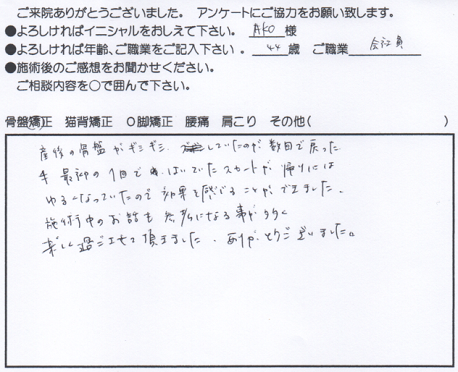 ご来院ありがとうございました。 アンケートにご協力をお願い致します。
●よろしければイニシャルをおしえて下さい。 AKO 様
●よろしければ年齢、ご職業をご記入下さい。 44 歳 ご職業 会社員
●施術後のご感想をお聞かせください。
ご相談内容を○で囲んで下さい。
骨盤矯正 猫背矯正 O脚矯正 腰痛 肩こり その他( )
産後の骨盤がギシギシ していたのが数回で戻った。
最初の1回で はいていたスカートが帰りには
ゆるくなっていたので効果を感じることができました。
施術中のお話も参考になる事が多く
楽しく過ごさせて頂きました。ありがとうございました。